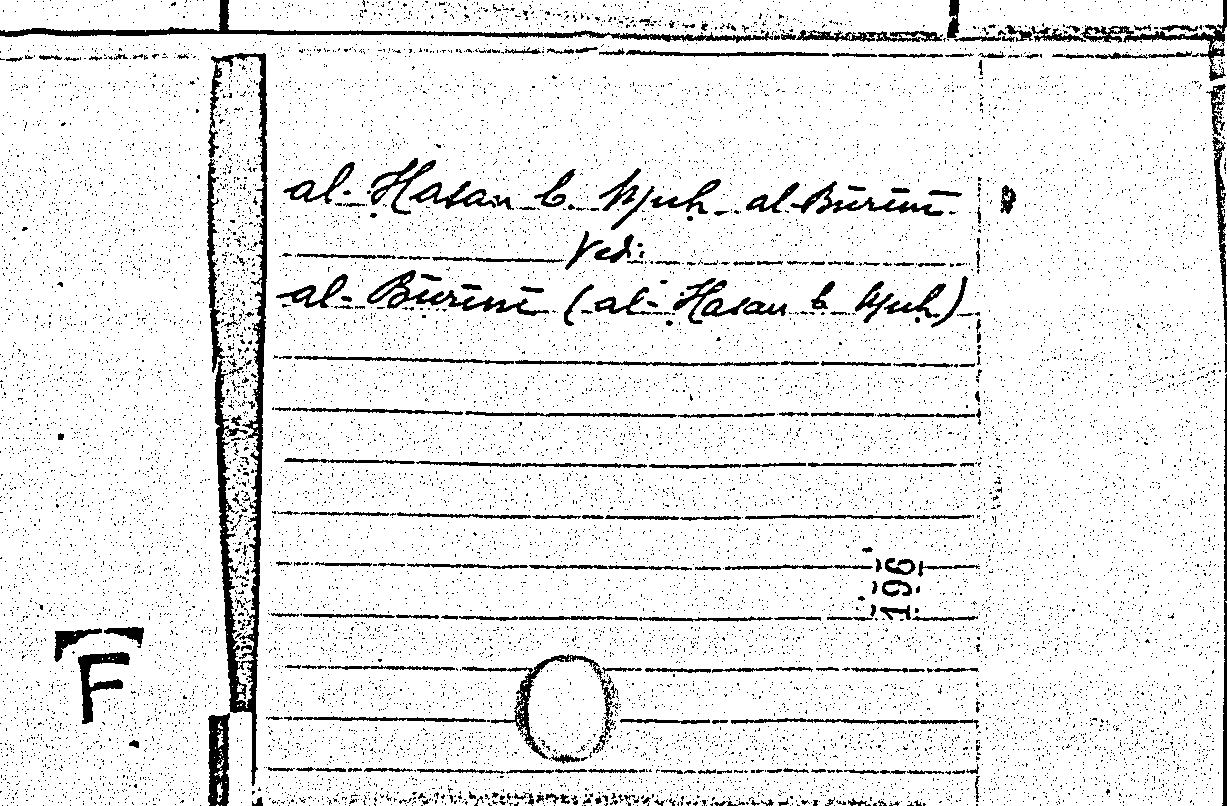 al-Ḥasan b. Muḥ. al-Būrīnī
Vedi:
al-Būrīnī (al-Ḥasan b. Muḥ.)
196
F